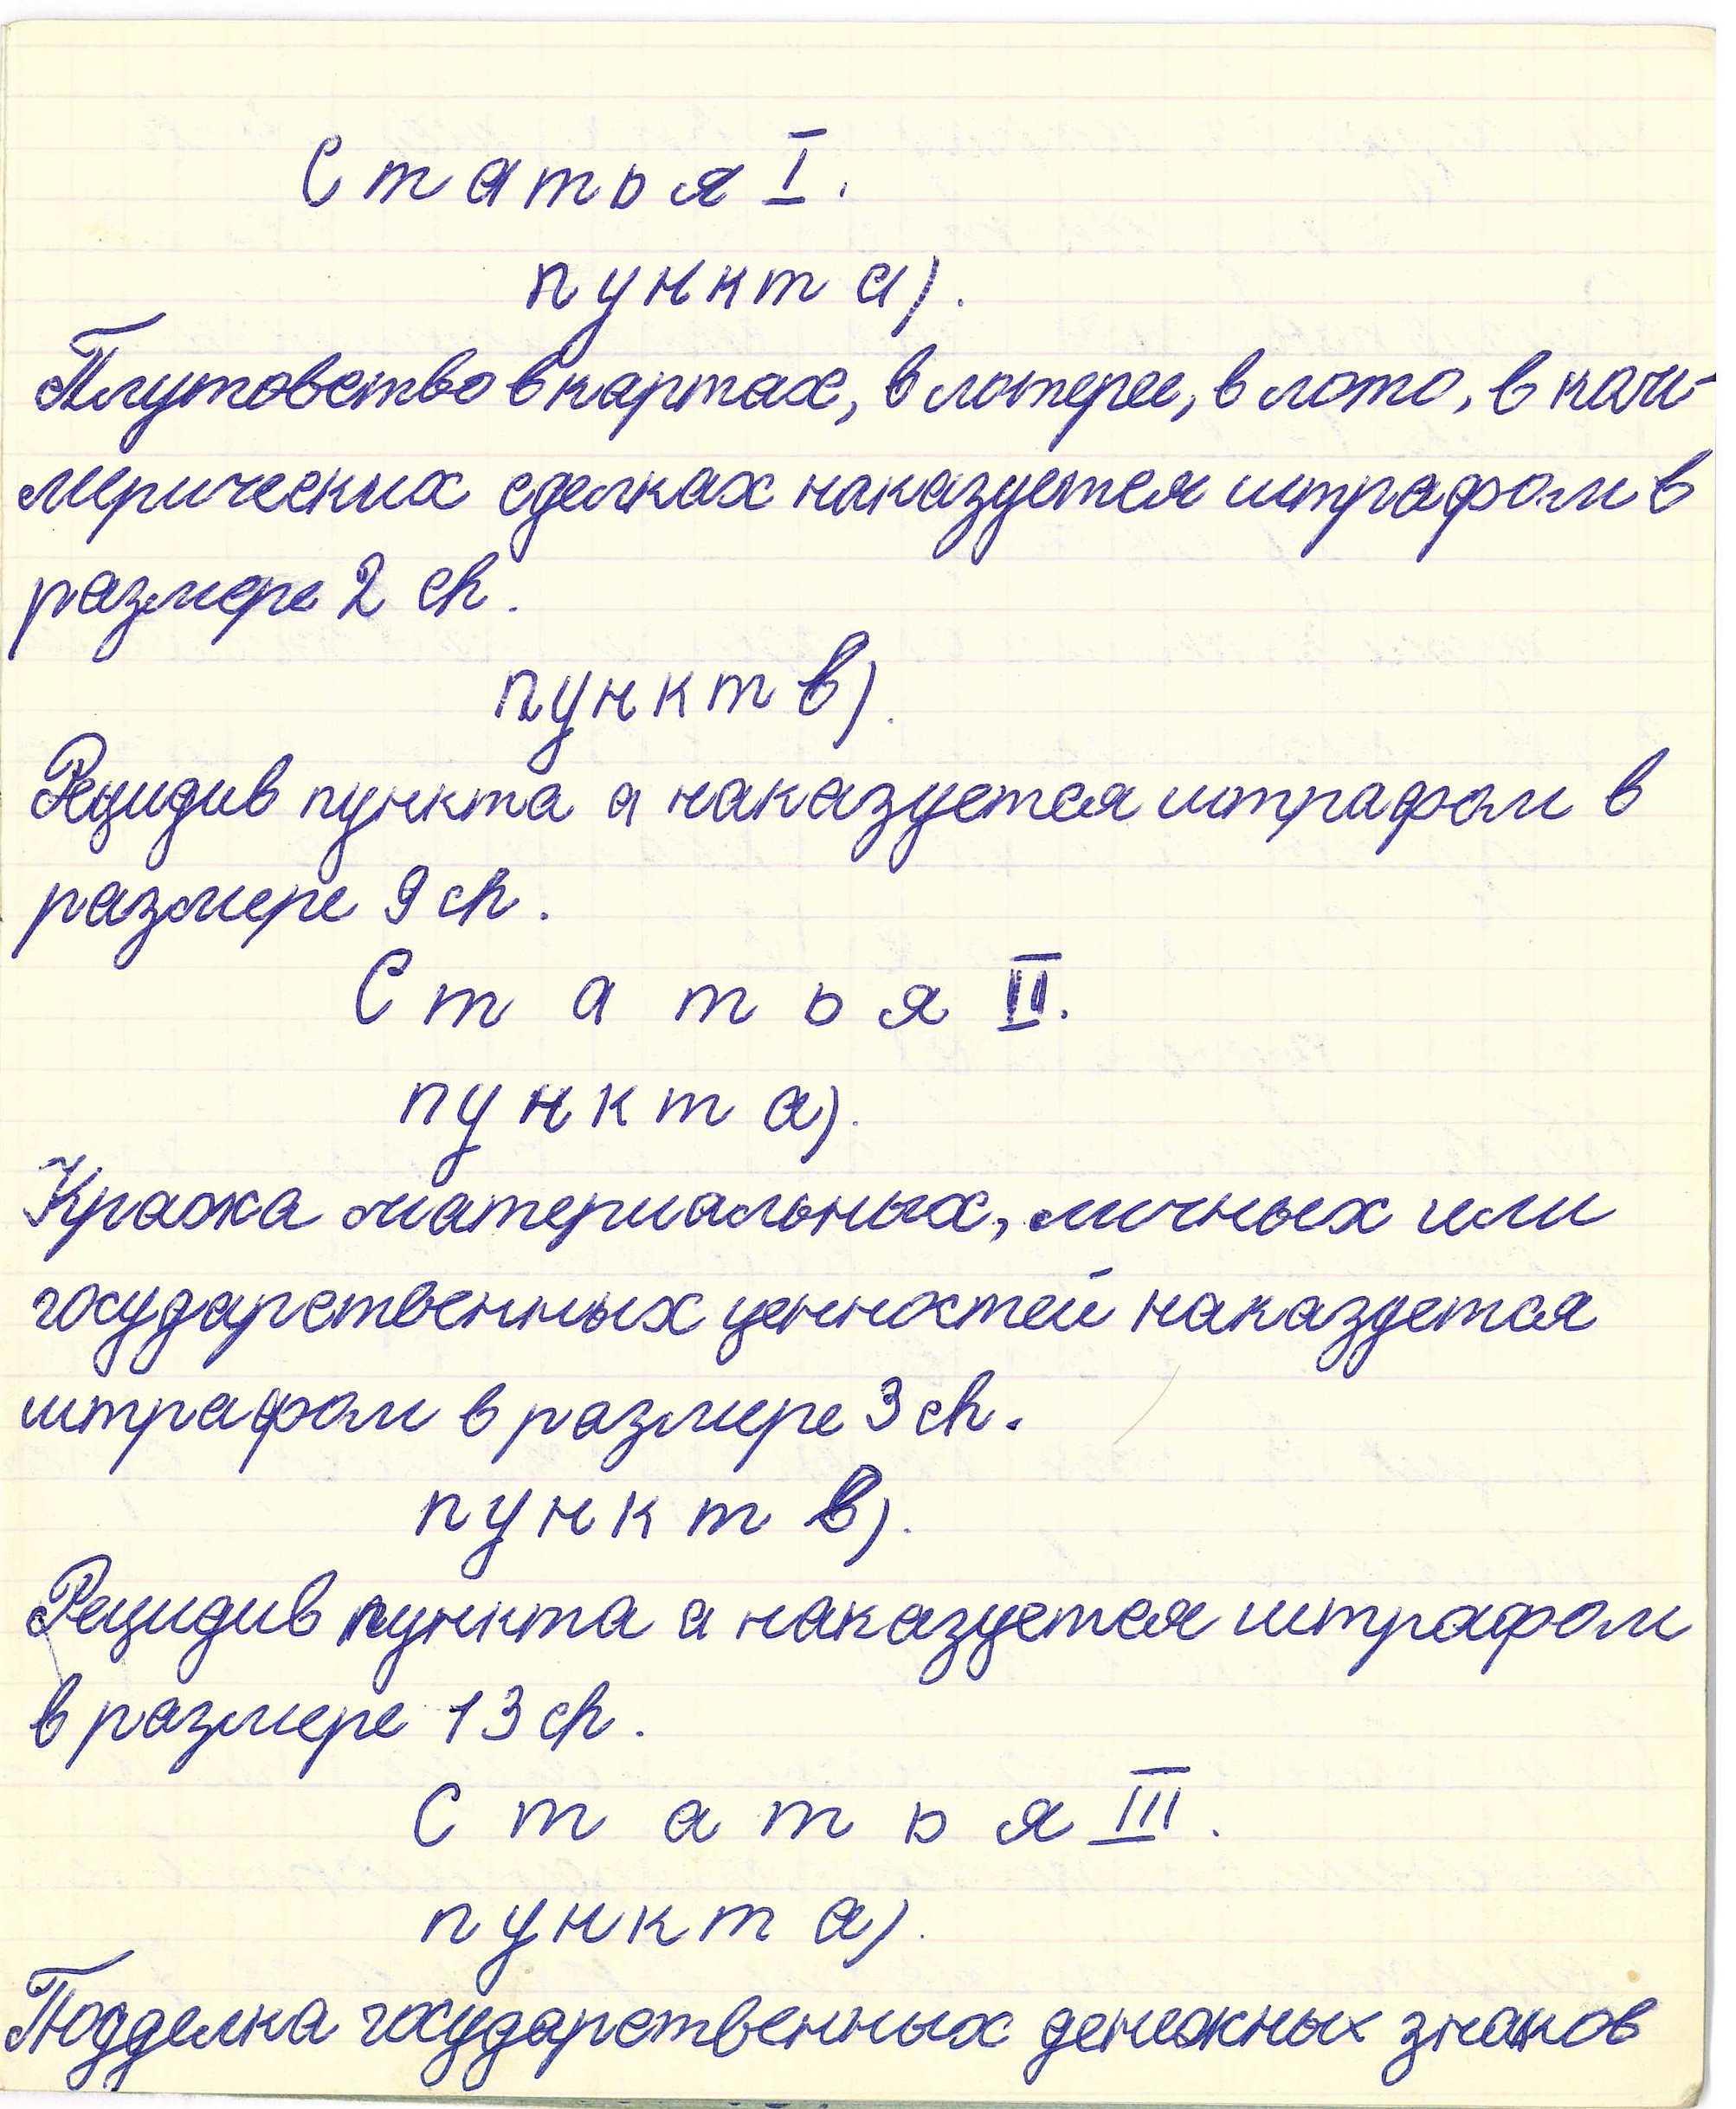 Статья I.
пункт а).
Плутовство в картах, в лотерее, в лото, в ком-
мерических сделках наказуется штрафом в
размере 2 ch.
пункт в).
Рецидив пункта а наказуется штрафом в
размере 9 ch.
Статья II.
пункт а).
Кража материальных, личных или
государственных ценностей наказуется
штрафом в размере 3 ch.
пункт в).
Рецидив пункта а наказуется штрафом
в размере 13 ch.
Статья III.
пункт а).
Подделка государственных денежных знаков